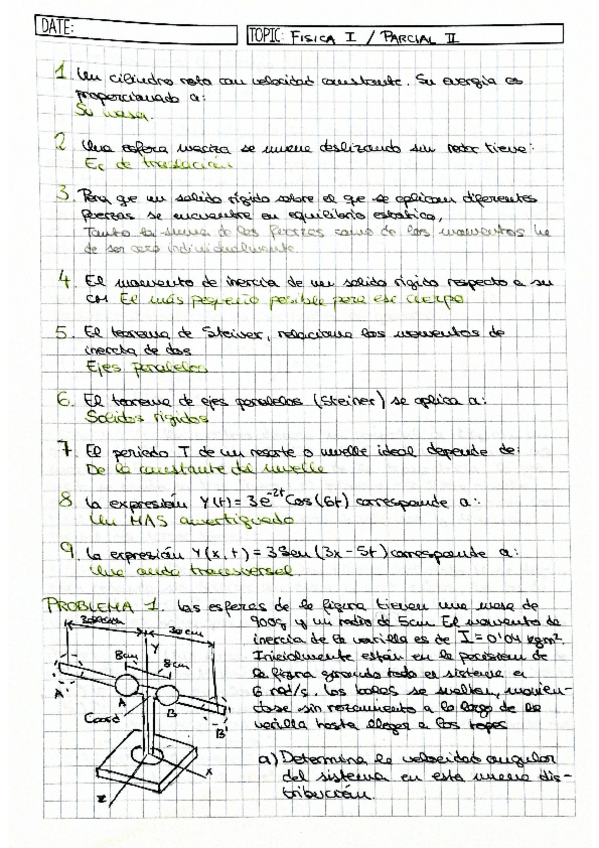 DATE:
TOPIC: FISICA I / PARCIAL II
1. Un cilindro rota con velocidad constante. Su energia es
proporcionado a:
Su masa.
2 Una esfera maciza se mueve deslizando sin rotar tiene:
Ec de traslación
3. Para que un solido rígido sobre el que se aplican diferentes
fuerzas se encuentre en equilibrio estático,
Tanto la suma de las fuerzas como de los momentos ha
de ser cero individualmente
4. El momento de inercia de un solido rígido respecto a su
CM El más pequeño posible para ese cuerpo
5. El teorema de Steiner, relaciona los momentos de
inercia de dos
Ejes paralelos
6. El teorema de ejes paralelos (Steiner) se aplica a:
Solidos rigidos
7. El periodo T de un resorte o muelle ideal depende de:
De la constante del muelle
8 La expresión Y(t) = 3e^-2t Cos(6t) corresponde a:
Un MAS amortiguado
9. La expresión Y(x,t) = 3Sen(3x-5t) corresponde a:
Una onda transversal
PROBLEMA 1. Las esferas de la figura tienen una masa de
900g y un radio de 5cm. El momento de
inercia de la varilla es de I = 0'04 kgm²
Inicialmente están en la posición de
la figura girando todo el sistema a
6 rad/s. Las bolas se sueltan, movien-
dose sin rozamiento a lo largo de la
varilla hasta llegar a los topes
a) Determina la velocidad angular
del sistema en esta nueva dis-
tribución.
30cm
8cm
8cm
Y
A'
A
B
B'
X
Z